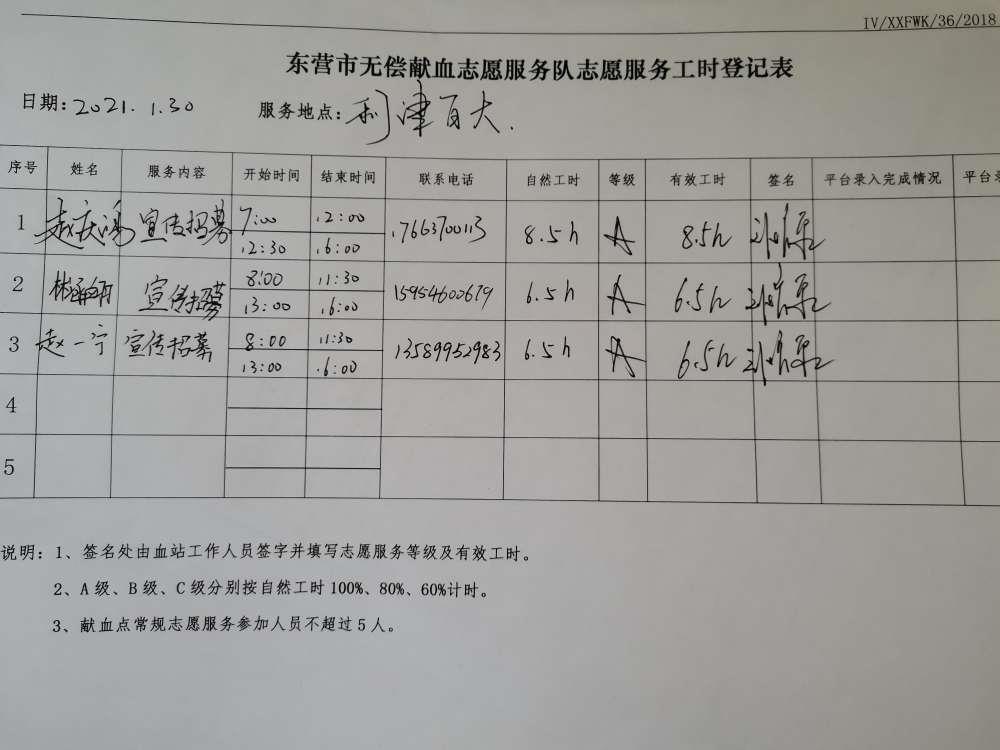 IV/XXFWK/36/2018
东营市无偿献血志愿服务队志愿服务工时登记表
日期: 2021.1.30 服务地点: 利津百大.
序号 姓名 服务内容 开始时间 结束时间 联系电话 自然工时 等级 有效工时 签名 平台录入完成情况 平台录
1 赵庆鸿 宣传招募 7:00 12:00 17663700113 8.5h A 8.5h
12:30 16:00
2 宣传招募 8:00 11:30 15954600679 6.5h A 6.5h
13:00 16:00
3 赵一宁 宣传招募 8:00 11:30 13589952983 6.5h A 6.5h
13:00 16:00
4
5
说明: 1、签名处由血站工作人员签字并填写志愿服务等级及有效工时。
2、A级、B级、C级分别按自然工时100%、80%、60%计时。
3、献血点常规志愿服务参加人员不超过5人。